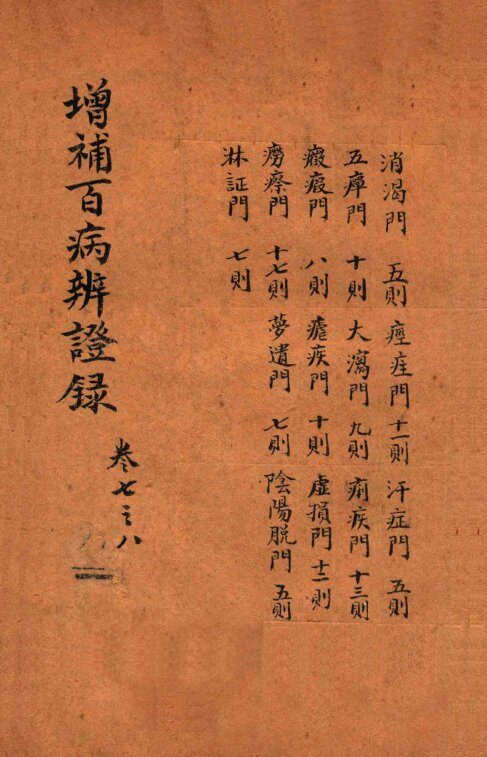 消渴門 五則 痙痓門 十一則 汗症門 五則
五瘴門 十則 大瀉門 九則 痢疾門 十三則
瘕門 八則 瘧疾門 十則 虛損門 十二則
癆瘵門 十七則 夢遺門 七則 陰陽脱門 五則
淋証門 七則
增補百病辨證録
卷七之八